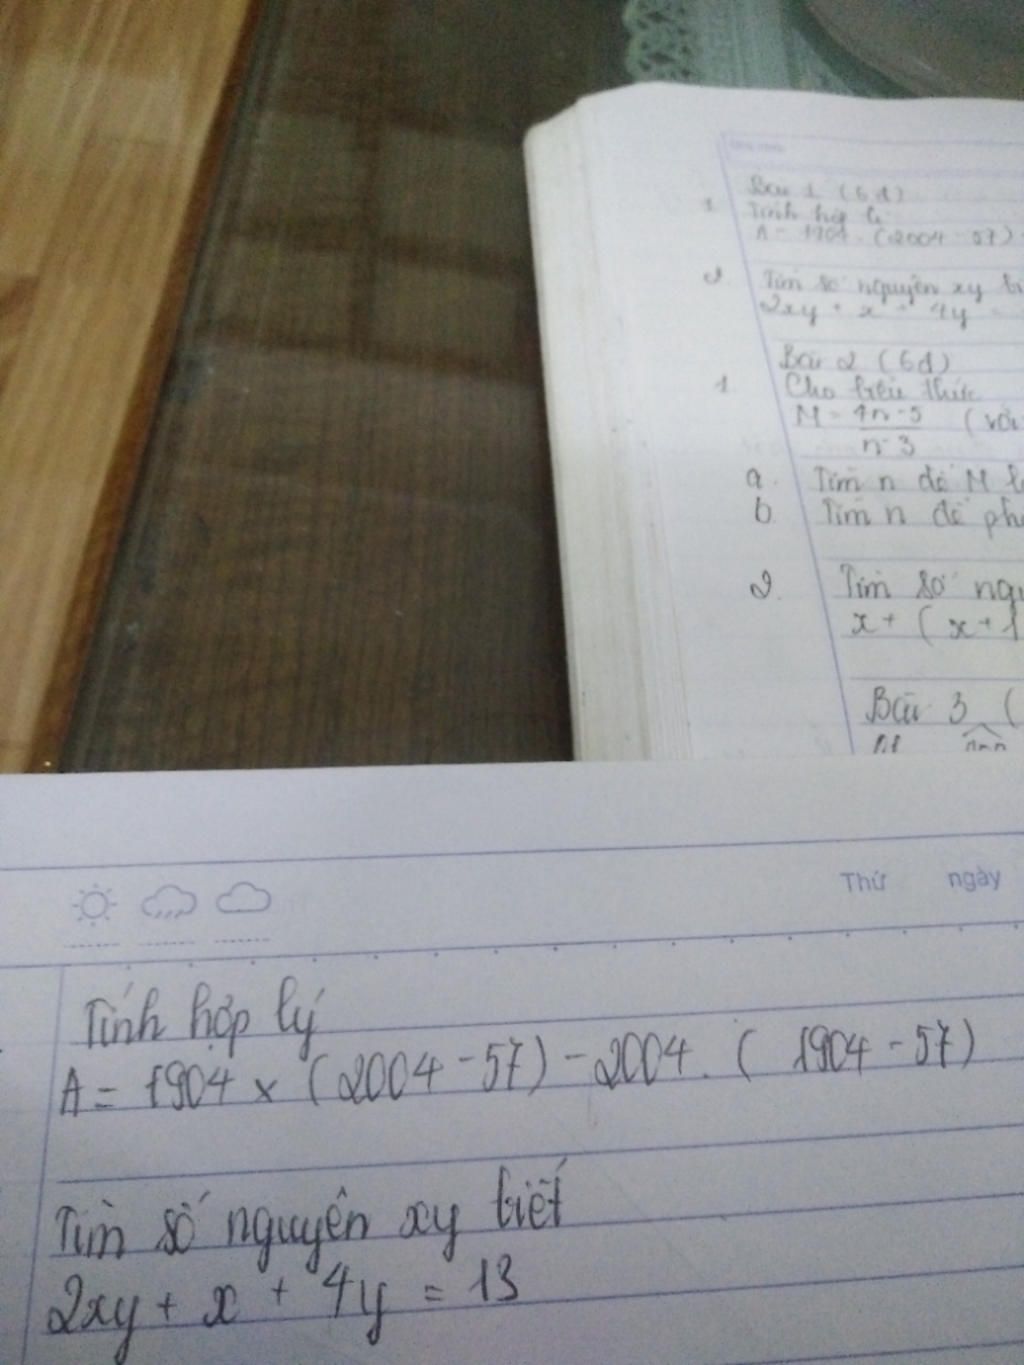 Bài 1 (6đ)
1 Tính hợp lí
A = 1904. (2004 - 57) -
2. Tìm số nguyên xy bi
2xy + x + 4y =
Bài 2 (6đ)
1 Cho biểu thức
M = 4n - 5
n - 3
( với
a. Tìm n để M l
b. Tìm n để phâ
2. Tìm số ngu
x + ( x + 1
Bài 3 (
Thứ ngày
Tính hợp lý
A = 1904 × (2004 - 57) - 2004. ( 1904 - 57)
Tìm số nguyên xy biết
2xy + x + 4y = 13